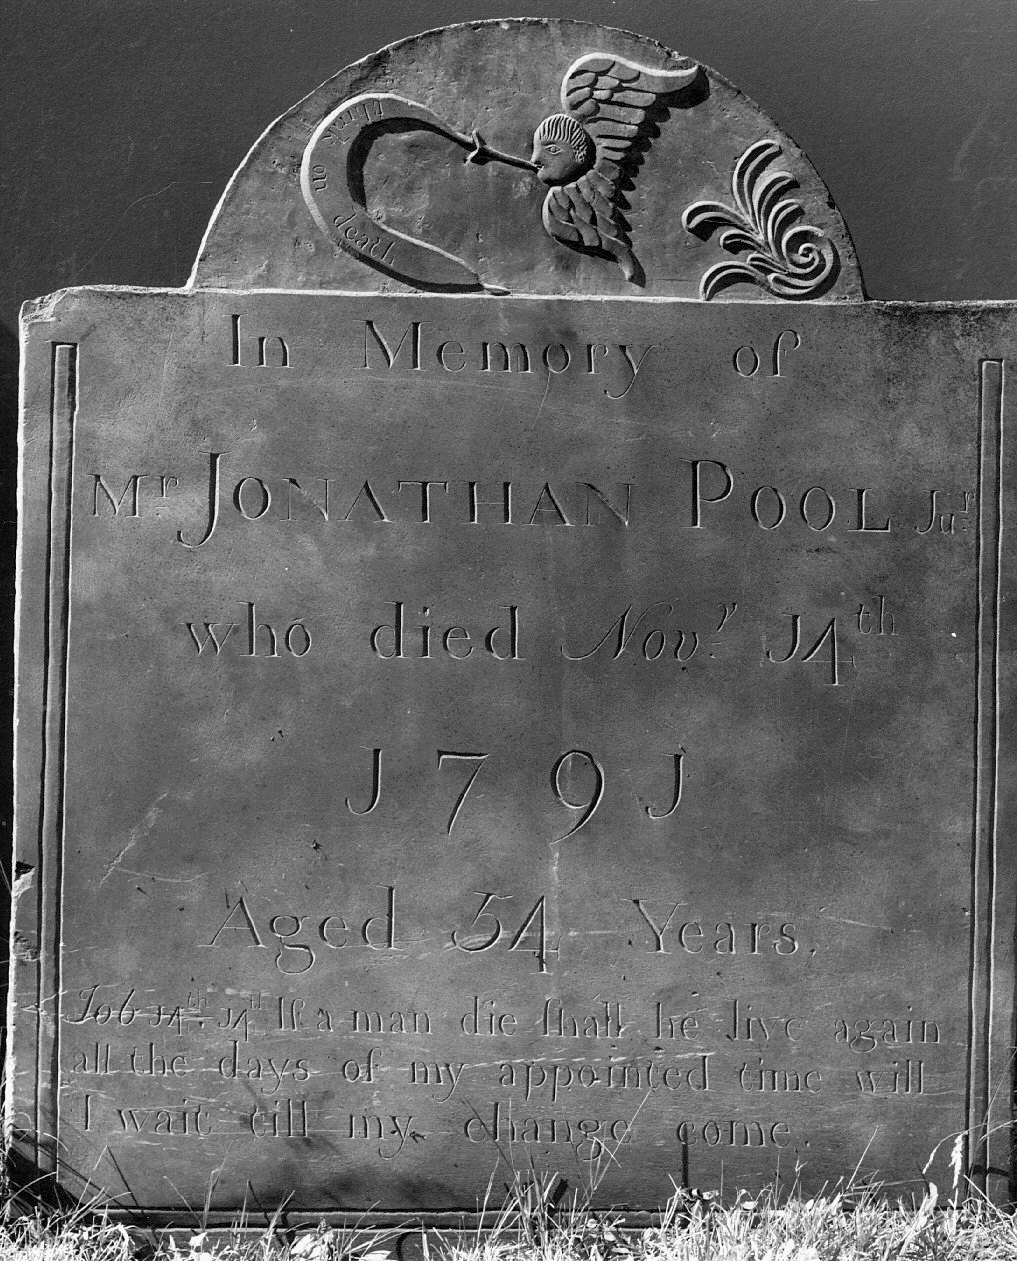 think on death
In Memory of
Mr. JONATHAN POOL Jur.
who died Novr. 14th
1791
Aged 34 Years.
Job 14th. 14th If a man die ſhall he live again
all the days of my appointed time will
I wait till my change come.